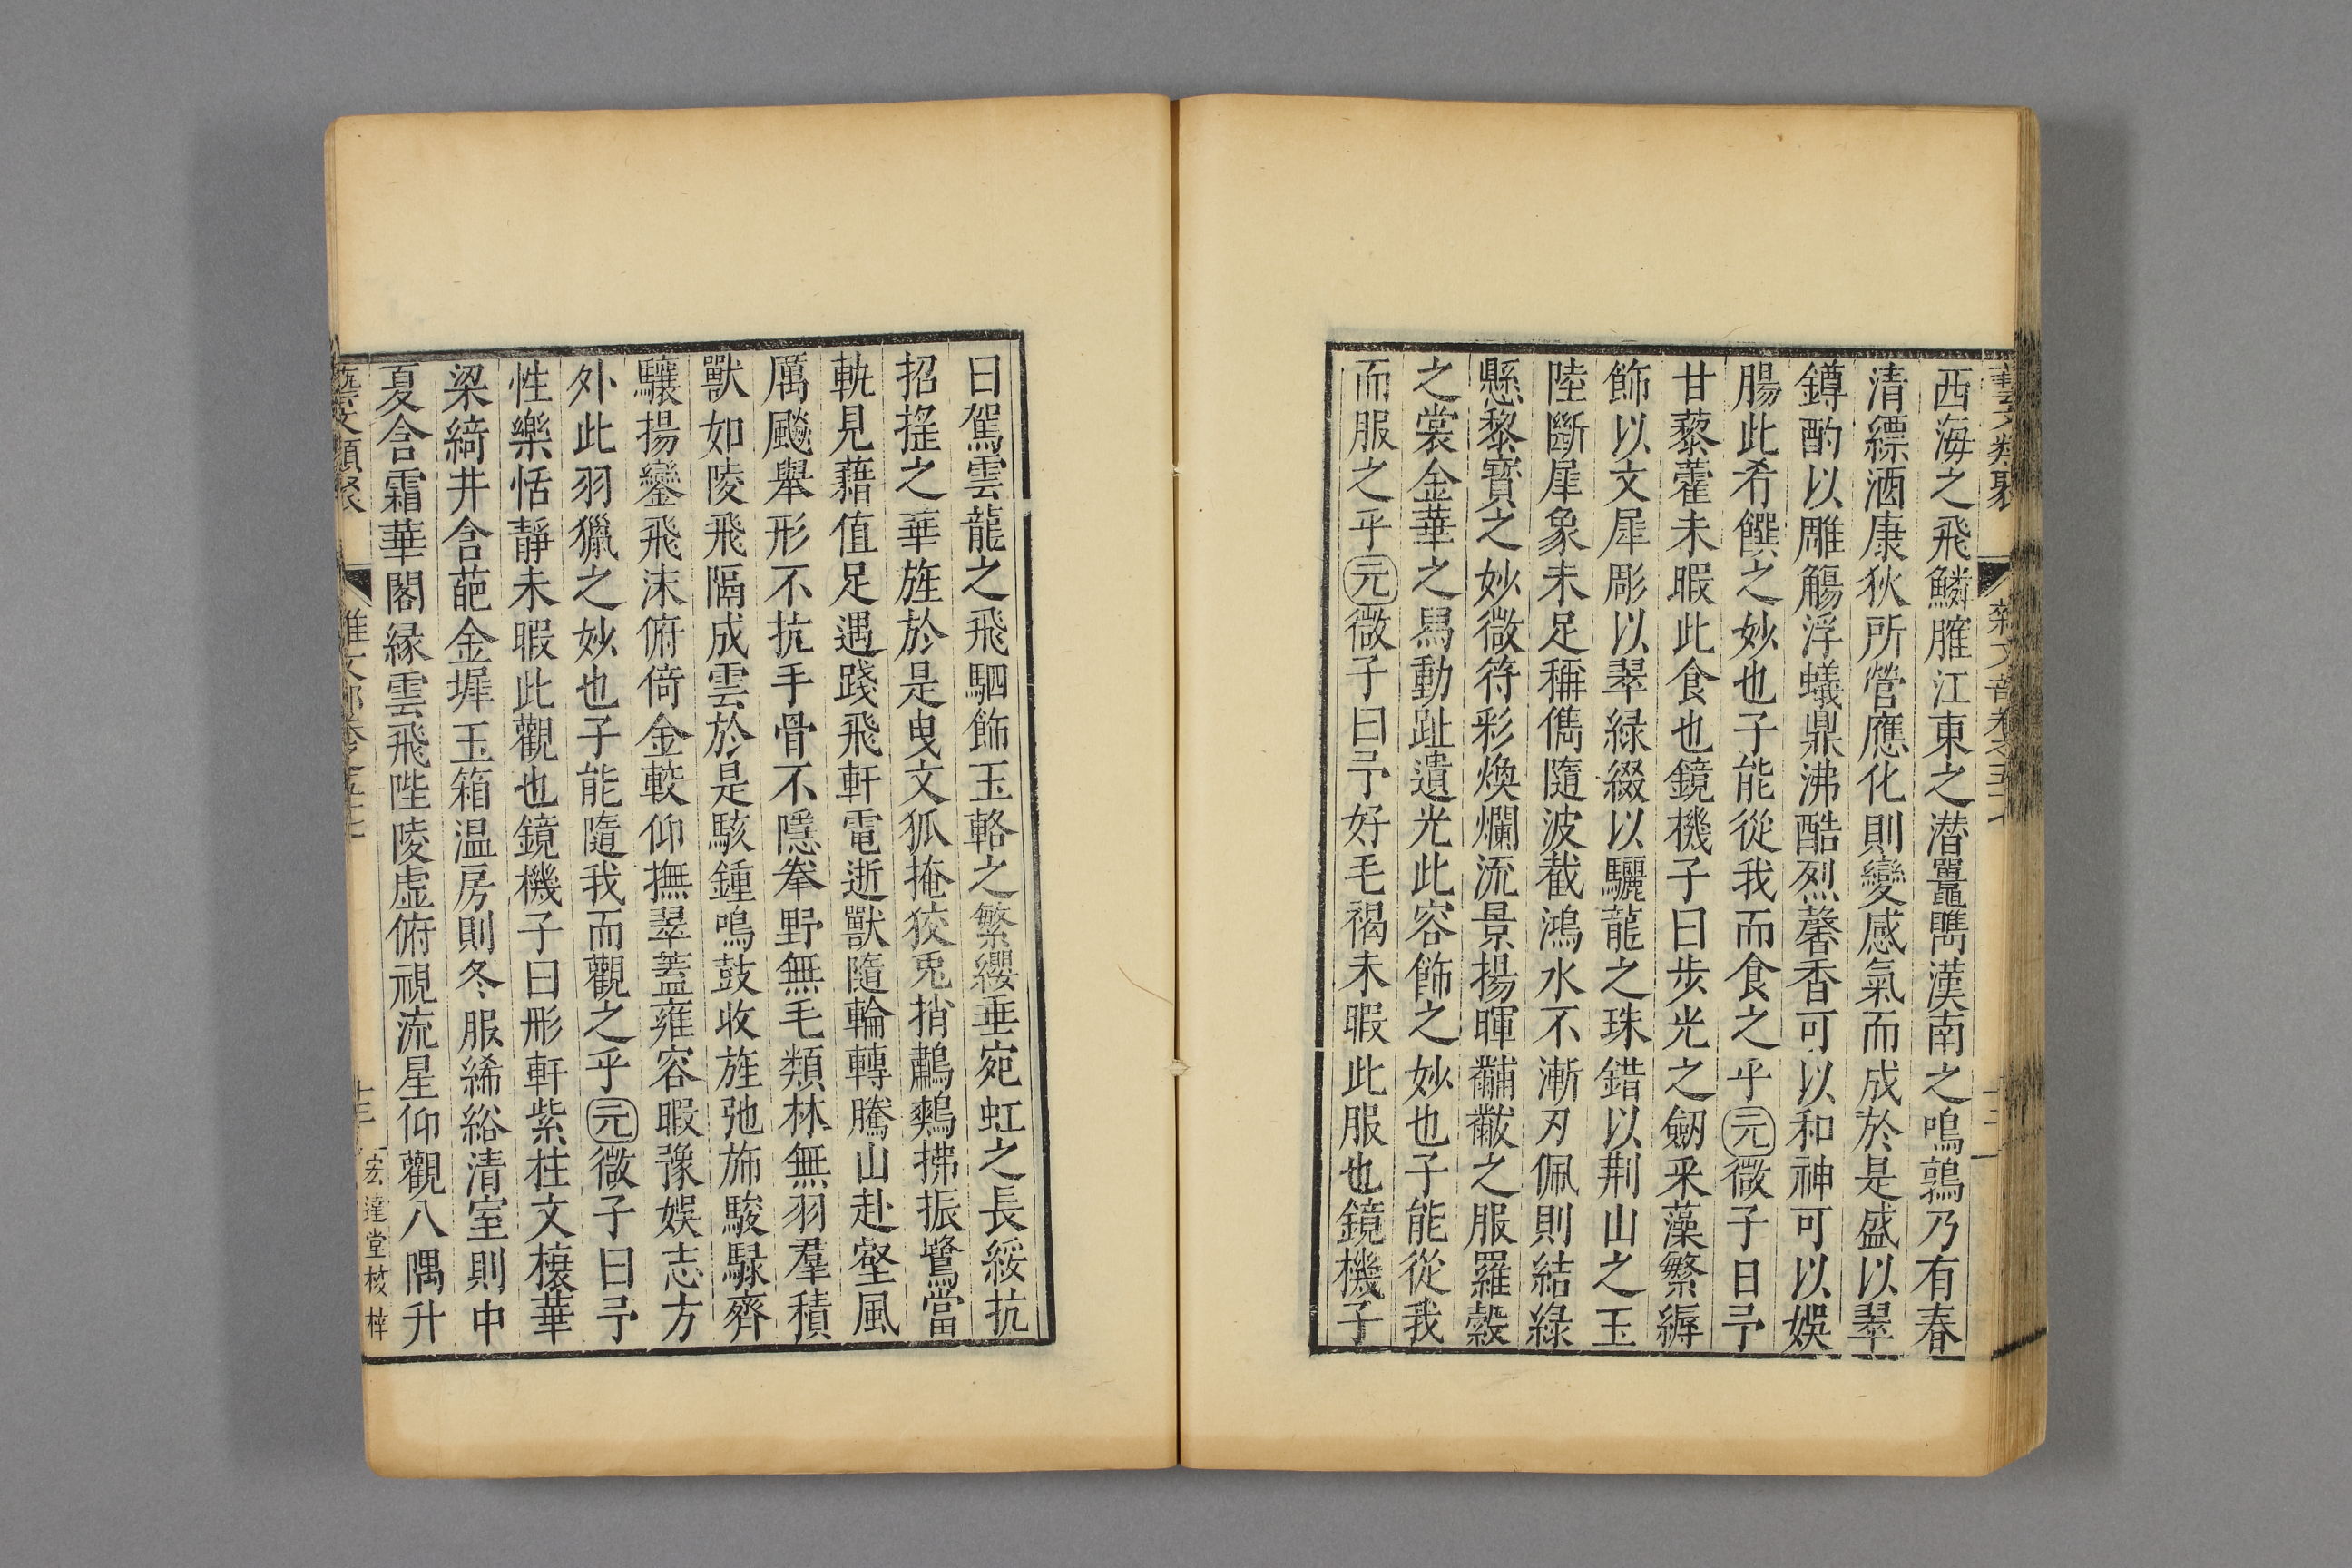 西海之飛鱗臛江東之潜鼉臇漢南之鳴鶉乃有春
清縹酒康狄所營應化則變感氣而成於是盛以翠
鐏酌以雕觴浮蟻鼎沸酷烈馨香可以和神可以娛
腸此肴饌之妙也子能從我而食之乎元微子曰予
甘藜藿未暇此食也鏡機子曰步光之劒采藻繁縟
飾以文犀彫以翠緑綴以驪龍之珠錯以荆山之玉
陸斷犀象未足稱儁隨波截鴻水不漸刃佩則結綠
懸黎寶之妙微符彩煥爛流景揚暉黼黻之服羅縠
之裳金華之舄動趾遺光此容飾之妙也子能從我
而服之乎元微子曰予好毛褐未暇此服也鏡機子
曰駕雲龍之飛駟飾玉輅之繁纓垂宛虹之長綏抗
招揺之華旌於是曳文狐掩狡兎捎鷫鷞拂振鷺當
軌見藉值足遇踐飛軒電逝獸隨輪轉騰山赴壑風
厲飈舉形不抗手骨不隱拳野無毛類林無羽羣積
獸如陵飛隔成雲於是駭鍾鳴鼓收旌弛斾駿騄齊
驤揚鑾飛沫俯倚金較仰撫翠蓋雍容暇豫娛志方
外此羽獵之妙也子能隨我而觀之乎元微子曰予
性樂恬靜未暇此觀也鏡機子曰彤軒紫柱文榱華
梁綺井含葩金墀玉箱温房則冬服絺綌清室則中
夏含霜華閣緣雲飛陛陵虛俯視流星仰觀八隅升
藝文類聚
雜文部卷之五十七
十三
宏達堂栞梓